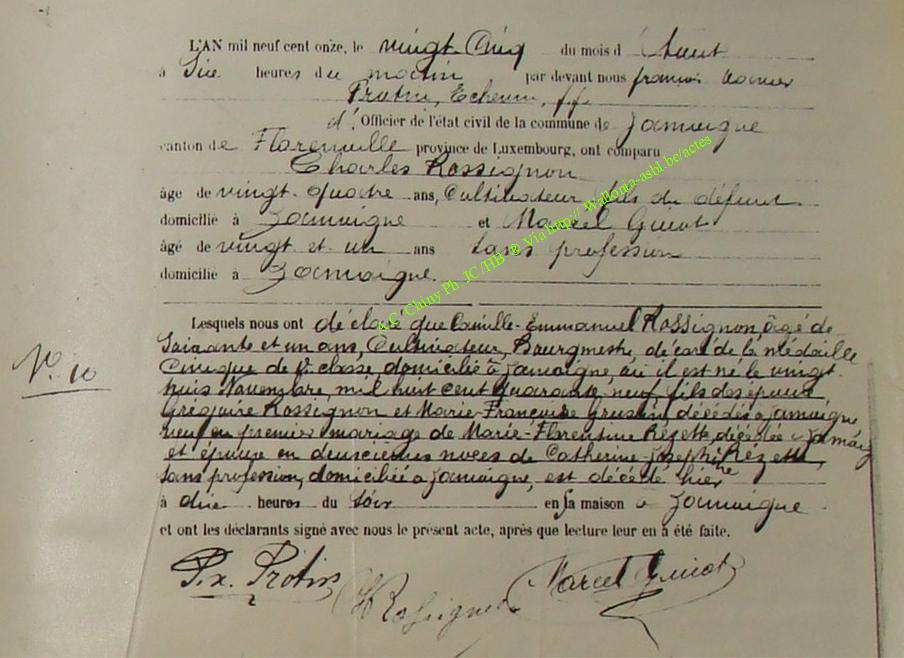 L'AN mil neuf cent onze, le vingt-Cinq du mois d'Aout
à Six heures du matin par devant nous françois Xavier
Protin, Echevin, f.f.
d' Officier de l'état civil de la commune de Jamoigne
canton de Florenville province de Luxembourg, ont comparu
Charles Rossignon
âge de vingt-quatre ans, Cultivateur fils du défunt
domicilié à Jamoigne et Marcel Guiot
âgé de vingt et un ans sans profession
domicilié à Jamoigne
Lesquels nous ont déclaré que Camille-Emmanuel Rossignon, âgé de
Soixante et un ans, Cultivateur, Bourgmestre, décoré de la médaille
Civique de 1e classe, domicilié à Jamoigne, où il est né le vingt-
huit Novembre, mil huit cent quarante neuf, fils des époux
Grégoire Rossignon et Marie-Françoise décédés à Jamoigne
veuf en premier mariage de Marie-Florentine Rézette, décédée à Jamoig
et époux en deuxièmes noces de Catherine-Joséphine Rézette,
sans profession, domiciliée à Jamoigne, est décédé hier
à dix heures du soir en sa maison à Jamoigne
et ont les déclarants signé avec nous le présent acte, après que lecture leur en a été faite.
N° 10
F. x. Protin Ch Rossignon Marcel Guiot
A.C. Chiny Ph JC /HB @ Via http:// Wallonia-asbl.be/actes